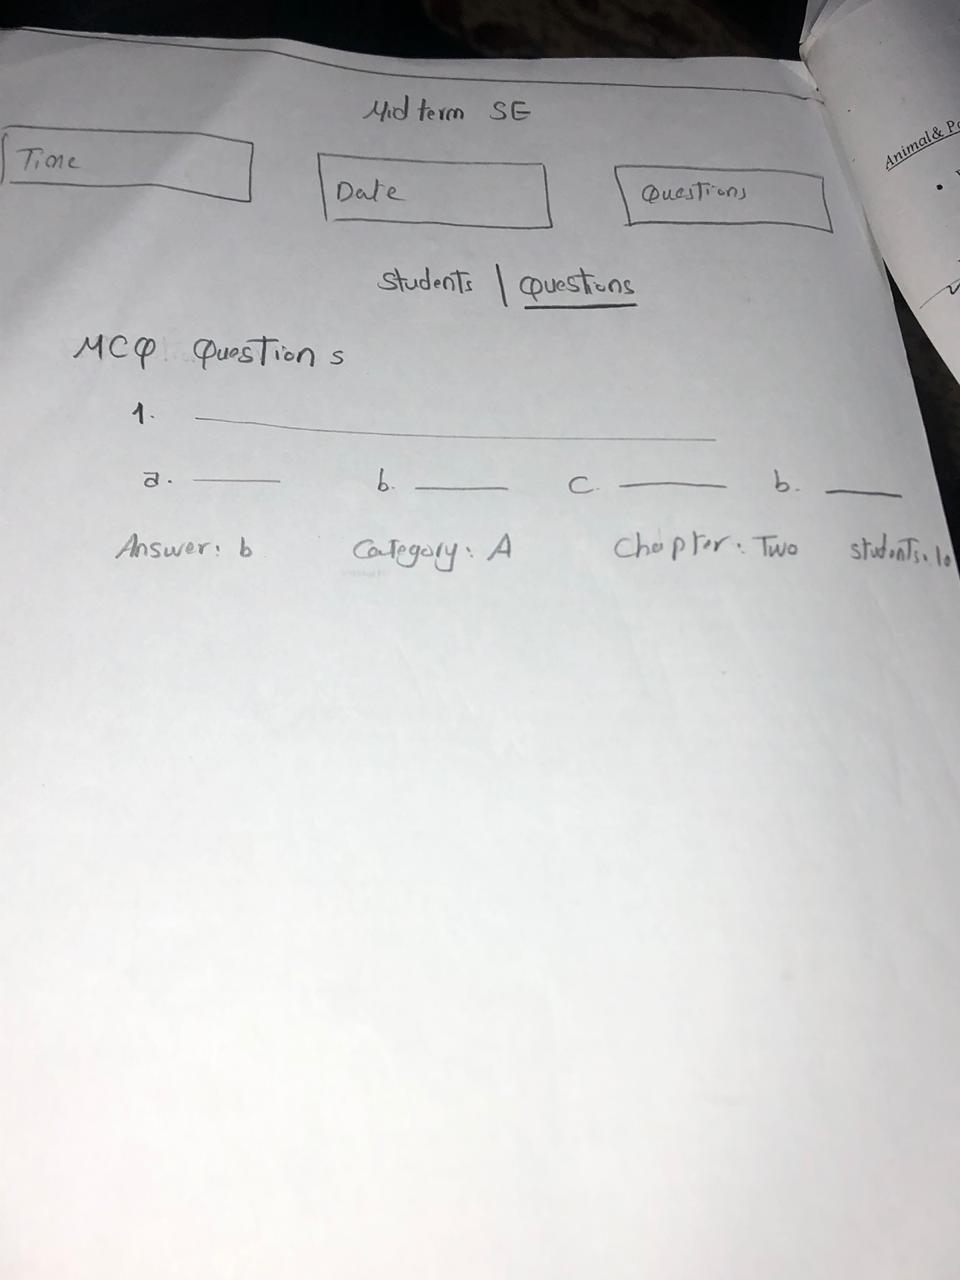 Midterm SE
Time
Date
Questions
Students | Questions
MCQ Questions
1.
a. b. c. b.
Answer: b Category: A Chapter: Two students: 10
Animal &